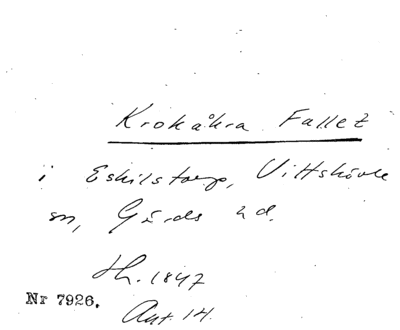 Krokåkra Fallet
i Eskilstorp, Vittskövle
sn, Gärds hd.
Sk. 1847
Nr 7926.
Akt. 14.